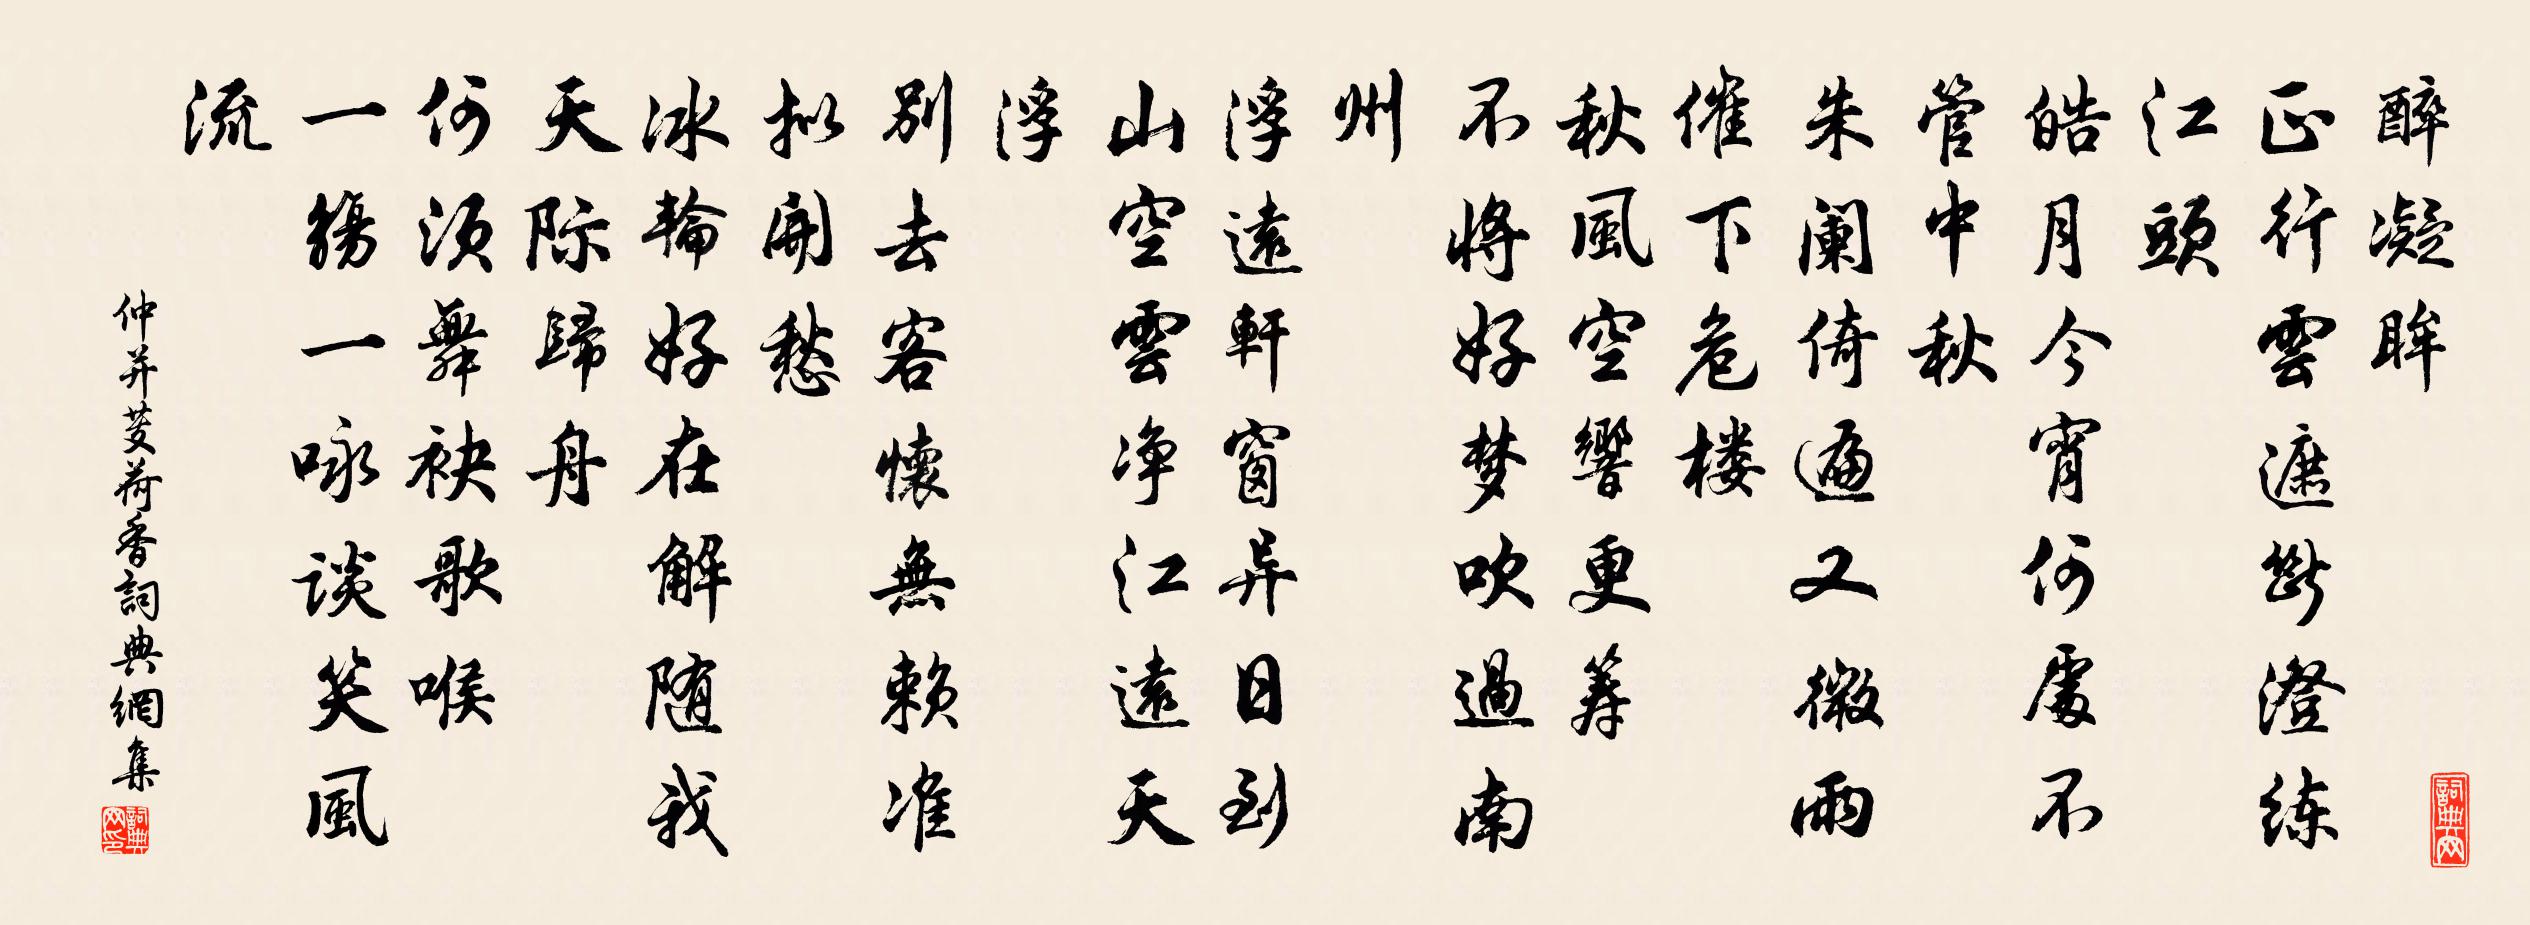 醉凝眸
正行雲遮斷澄练
江頭
皓月今宵何處不
管中秋
朱阑倚遍又微雨
催下危楼
秋風空響更筹
不將好梦吹過南
州
浮遠軒窗异日到
山空雲净江遠天
浮
别去客懷無赖准
拟開愁
冰輪好在解随我
天际歸舟
何须舞袂歌喉
一觴一咏谈笑風
流
仲并芰荷香詞典網集
詞典网印
詞典网